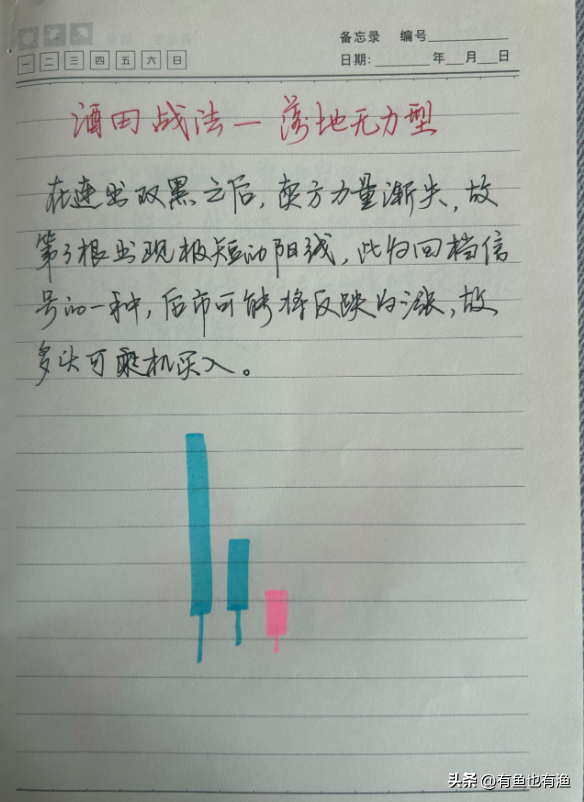 备忘录 编号
一 二 三 四 五 六 日
日期: 年 月 日
酒田战法—落地无力型
在连出双黑之后,卖方力量渐失,故
第3根出现极短的阳线,此为回档信
号的一种,后市可能将反映为涨,故
多头可乘机买入。
头条 @有鱼也有渔